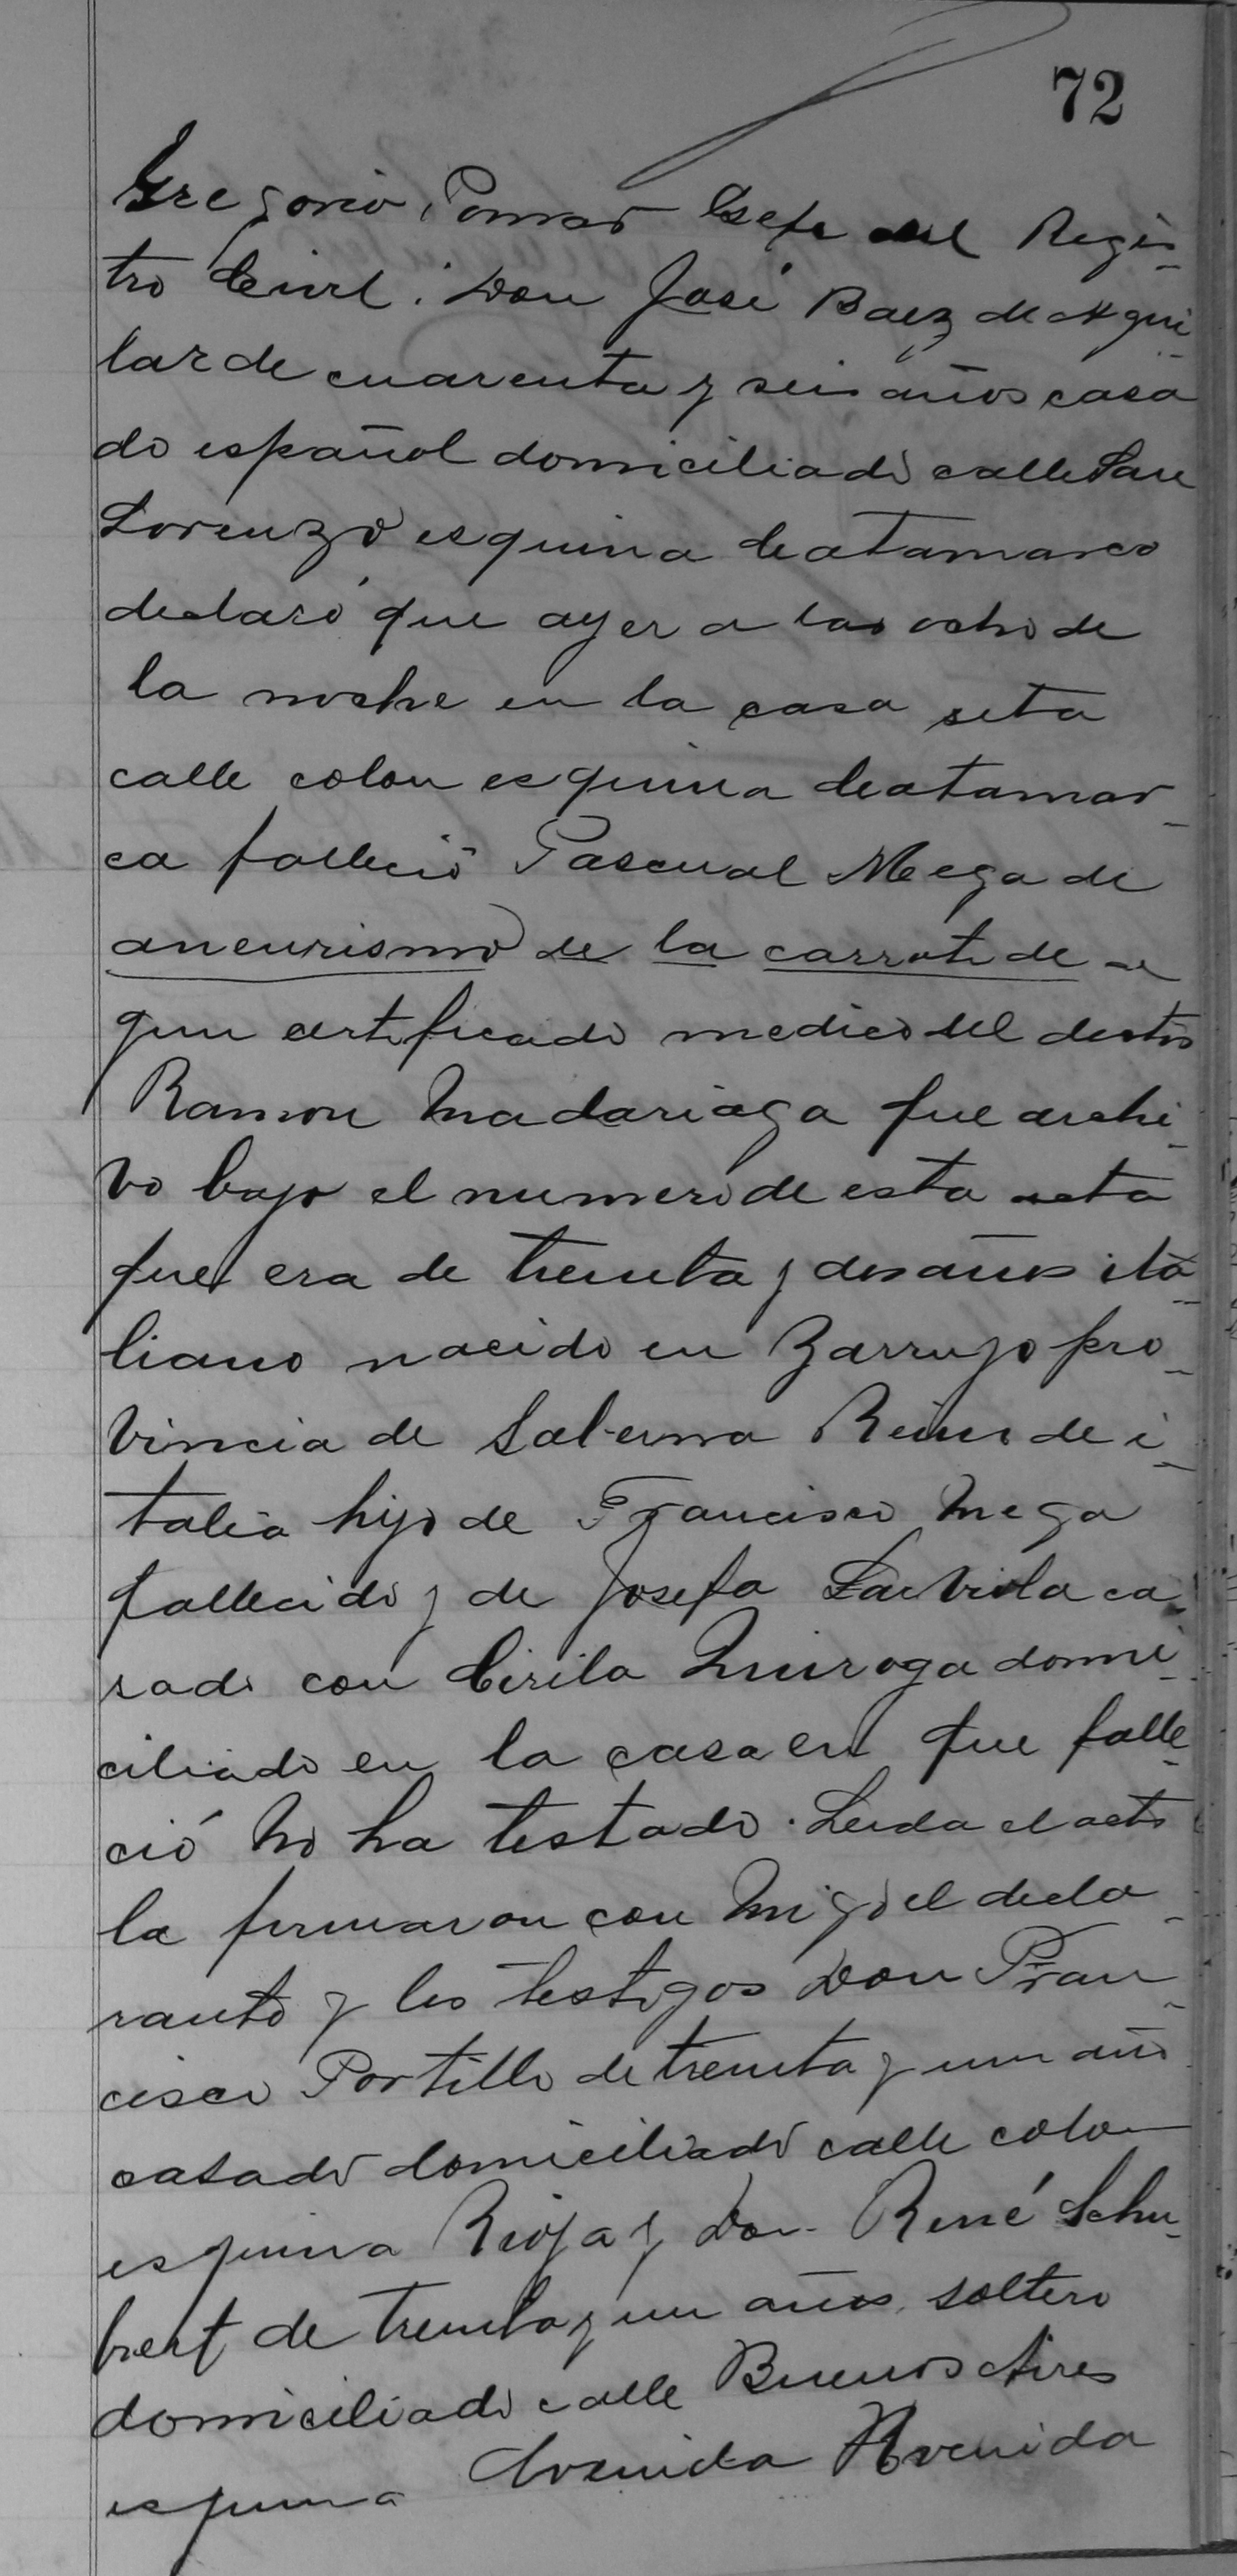 72
Gregorio Pomar Gefe del Regis
tro Civil. Don José Baez de Agui
lar de cuarenta y seis años casa
do español domiciliado calle San
Lorenzo esquina Catamarca
declaró que ayer a las ocho de
la noche en la casa sita
calle colon esquina Catamar
ca falleció Pascual Mega de
aneurismo de la carrotide se
gun certificado medico del doctor
Ramon Madariaga que archi
vo bajo el numero de esta acta
que era de treinta y dos años ita
liano nacido en provincia
vincia de Salerna Reino de i
talia hijo de Francisco Mega
fallecido y de Josefa ca
sado con Cirila Quiroga domi
ciliado en la casa en que falle
ció No ha testado. Leida el acta
la firmaron con migo el decla
rante y los testigos Don Fran
cisco Portillo de treinta y un año
casado domiciliado calle colon
esquina Rioja y Don René Schu
bert de treinta y un años soltero
domiciliado calle Buenos Aires
esquina Avenida Avenida